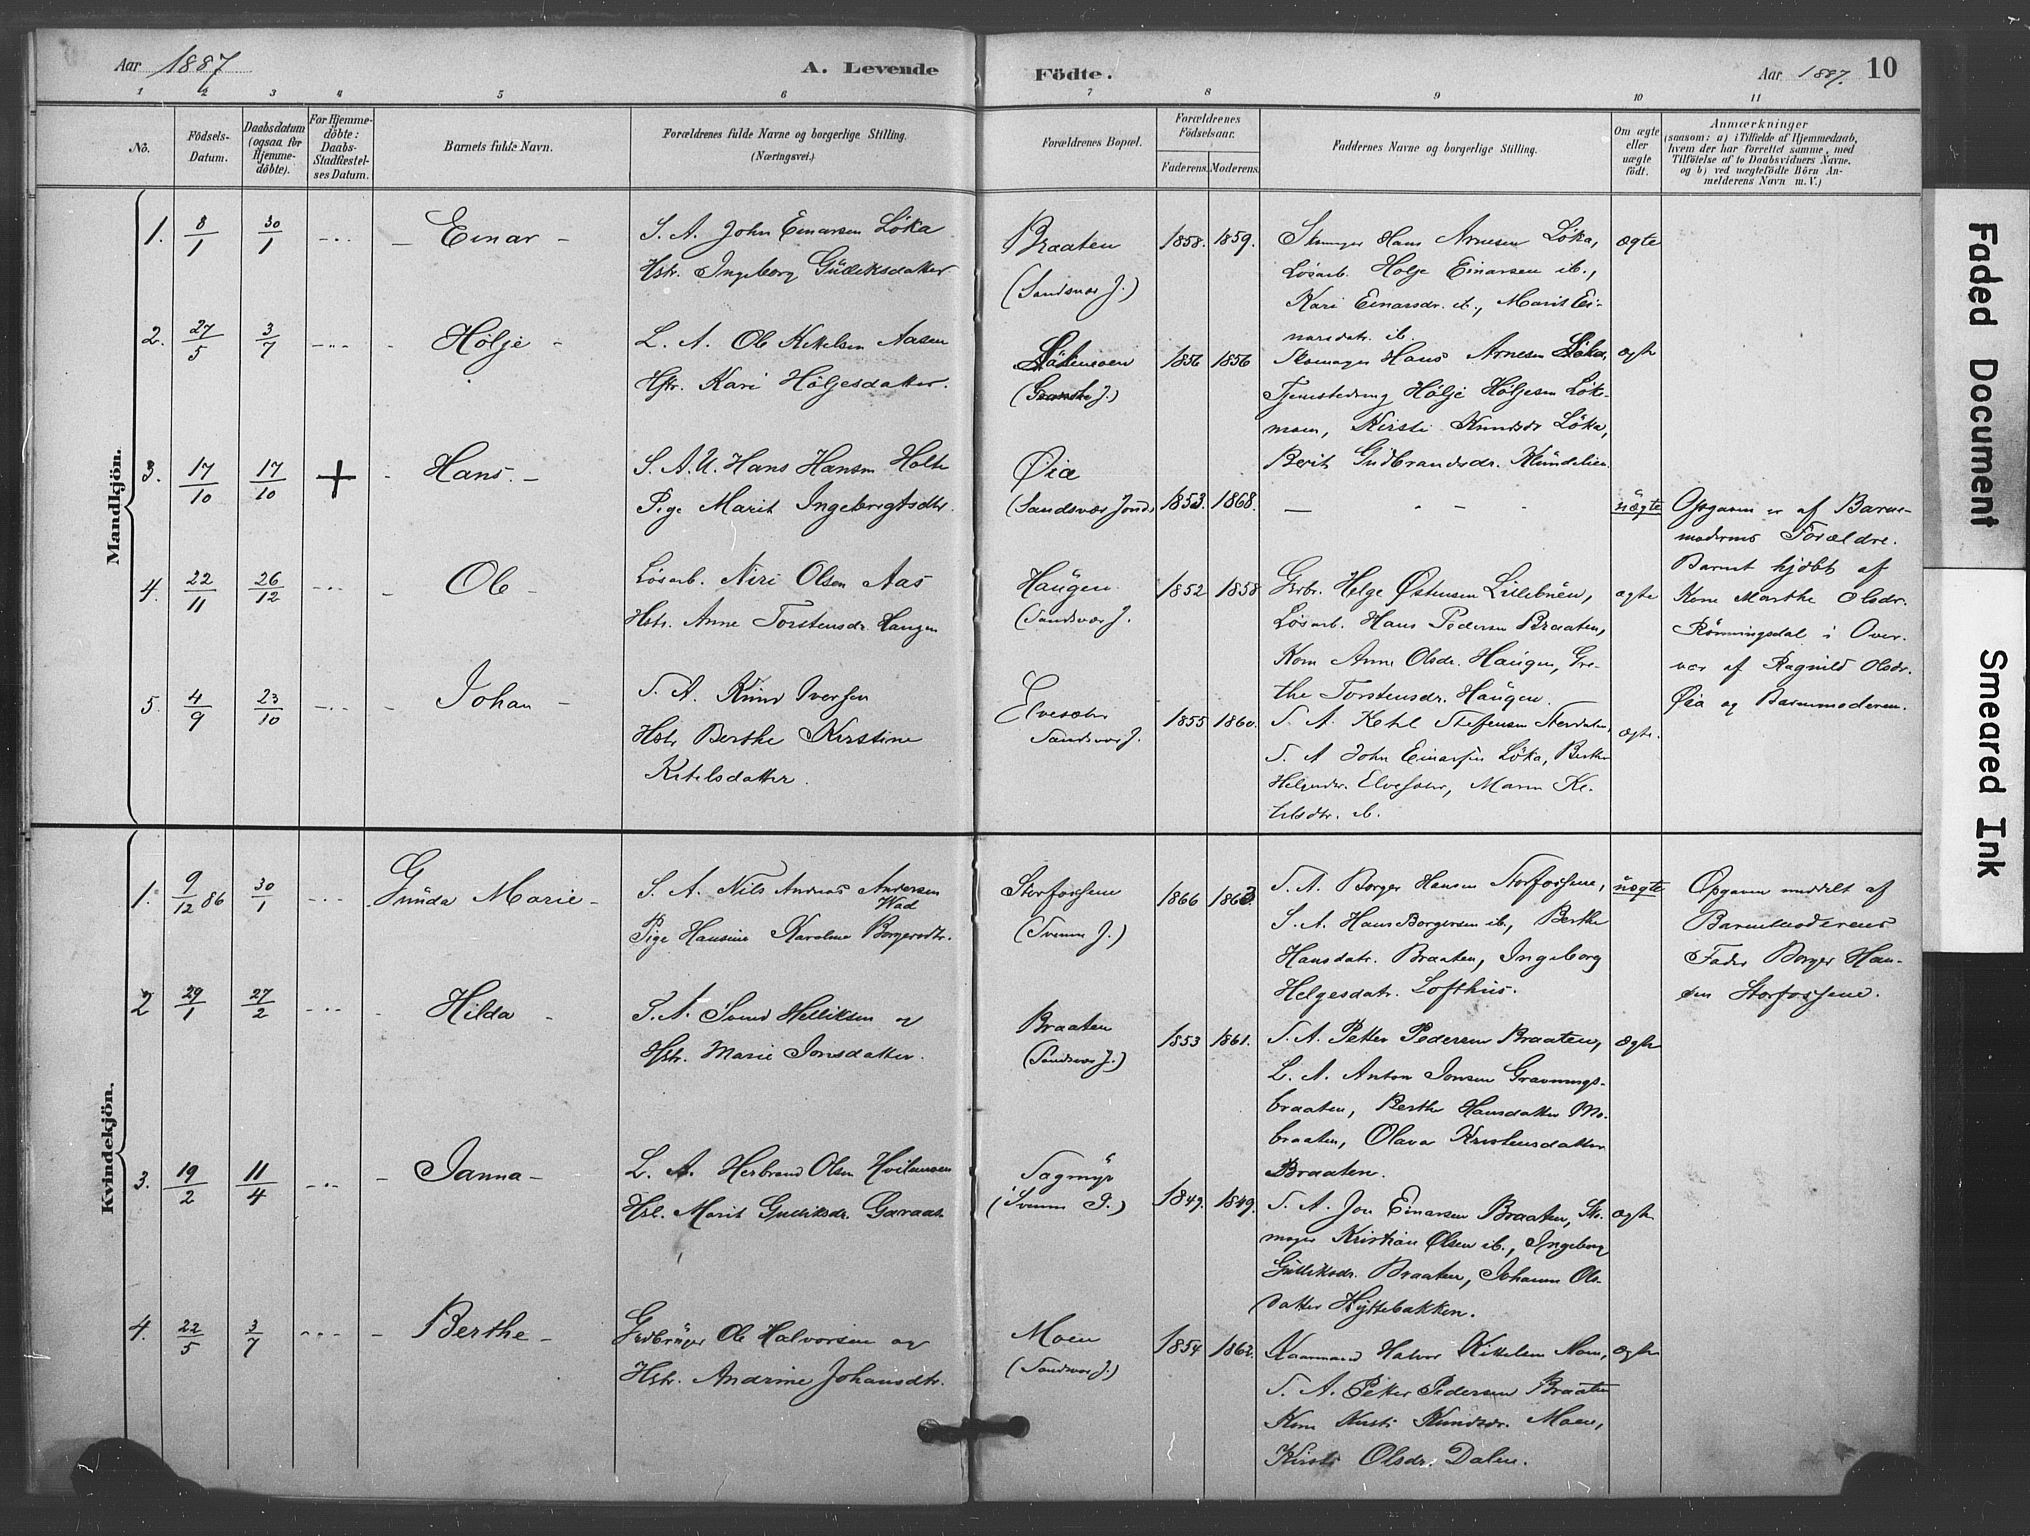 Aar 1887
A. Levende
Födte.
Aar 1887. 10
1 2 3 4 5 6 7 8 9 10 11
No.
Födsels-
Datum.
Daabsdatum
(ogsaa for
Hjemme-
döbte).
For Hjemme-
döbte:
Daabs-
Stadfæstel-
ses Datum.
Barnets fulde Navn.
Forældrenes fulde Navne og borgerlige Stilling.
(Næringsvei.)
Forældrenes Bopæl.
Forældrenes
Födselsaar.
Faderens. Moderens.
Faddernes Navne og borgerlige Stilling.
Om ægte
eller
uægte
födt.
Anmærkninger
(saasom: a) i Tilfælde af Hjemmedaab,
hvem der har forrettet samme, med
Tilföielse af to Daabsvidners Navne.
og b) ved uægtefödte Börn An-
melderens Navn m. V.)
Mandkjön.
1. 8/1 30/1 - - - Einar -
S. A. John Einarsen Löka
Hstr. Ingeborg Gülliksdatter
Braaten
(Sandsvær J.)
1858. 1859.
Skomager Hans Arnesen Löka,
Lösarb. Holje Einarsen ib.,
Kari Einarsdr. ib., Marit Ei-
narsdatr. ib.
ægte
2. 27/5 3/7 - - - Hölje -
L. A. Ole Kittelsen Aasen
Hstr. Kari Höljesdatter.
Lökemoen
(Gransh. J.)
1856 1856
Skomager Hans Arnesen Löka,
Tjenestedreng Hölje Höljesen Löke-
moen, Kirsti Knudsdr. Löka,
Berit Gudbrandsdr.
ægte
3. 17/10 17/10 + - Hans. -
S. A. U. Hans Hansen Holte
Pige Marit Ingebrigtsdtr.
Øia
(Sandsvær Jonds
1853. 1868.
- - -
üægte
Opgaven er af Barne-
moderens Forældre.
Barnet hjdöbt af
Kone Marthe Olsdr.
Rönningsdal i Over-
vær af Ragnild Olsdr.
Øia og Barnemoderen.
4. 22/11 26/12 - - - Ole -
Lösarb. Niri Olsen Aas
Hstr. Anne Torstensdr. Haugen
Haügen
(Sandsvær J.
1852 1858
Grbr. Helge Østensen Lillebrüen,
Lösarb. Hans Pedersen Braaten,
Kone Anne Olsdr. Haügen, Gre-
the Torstensdr. Haügen.
ægte
5. 4/9 23/10 - - - Johan -
S. A. Knud Iversen
Hstr. Berthe Kirstine
Ketelsdatter.
Elvesæter
Sandsvær J.
1855 1860.
S. A. Ketil Steffensen
S. A. John Einarsen Löka, Berthe
Helgesdr. Elvesæter, Maren Ke-
telsdtr. ib.
ægte.
Kvindekjön.
1. 9/12 86 30/1 Günda Marie -
S. A. Nils Andreas Andersen
Wad
Pige Hansine Karoline Borgersdtr.
Storfossene
(Svenne J.)
1866 1863.
S. A. Borger Hansen Storfossene,
S. A. Hans Borgersen ib., Berthe
Hansdatr. Braaten, Ingeborg
Helgesdatr. Lofthus.
üægte
Opgaven meddelt af
Barnemoderens
Fader Borger Han-
sen Storfossene.
2 29/1 27/2 - - - Hilda -
S. A. Svend Helliksen og
Hstr. Marie Jonsdatter.
Braaten
(Sandsvær J.)
1853 1861.
S. A. Petter Pedersen Braaten,
L. A. Anton Jonsen Gravnings-
braaten, Berthe Hansdatter Mo-
braaten, Olava Kristensdatter
Braaten.
ægte
3. 19/2 11/4 - - - Janna -
L. A. Herbrand Olsen Hvilemoen
Hst. Marit Gulliksdr. Garaas.
Sagmyr
(Svenne P.)
1849. 1849.
S. A. Jon Einarsen Braaten, Sko-
mager Kristian Olsen ib., Ingeborg
Gülliksdr. Braaten, Johanne Ols-
datter Hyttebakken.
ægte
4. 22/5 3/7 - - - Berthe -
Grdbrüger Ole Halvorsen og
Hstr. Andrine Johansdtr.
Moen
(Sandsvær J.)
1854 1862.
Kaarmand Halvor Kittelsen Moen,
S. A. Peter Pedersen Braaten
Kone Kirsti Knudsdr. Moen,
Kirsti Olsdr. Dalen.
ægte
Faded Document
Smeared Ink